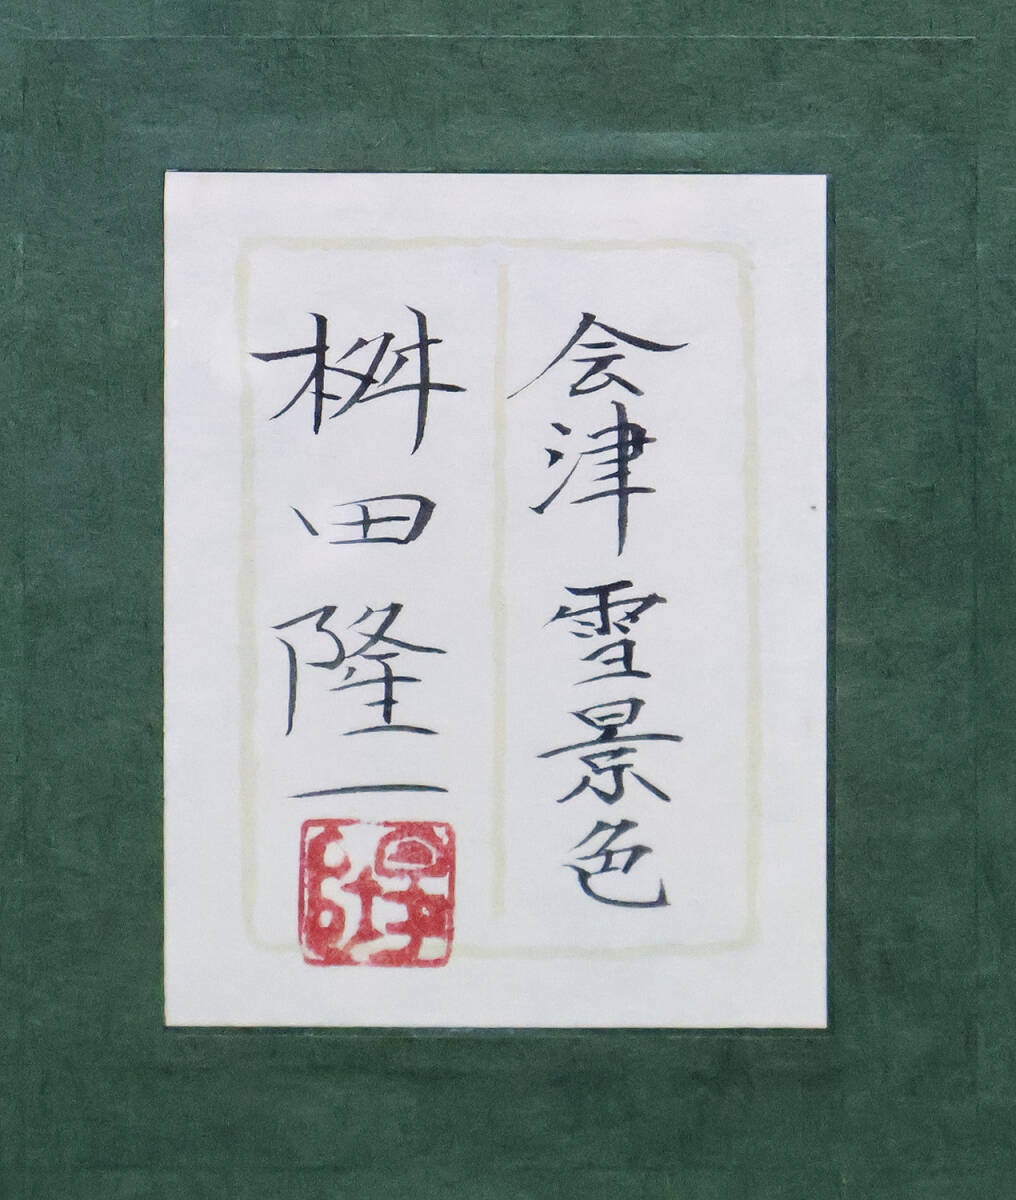 会津雪景色
桝田隆一